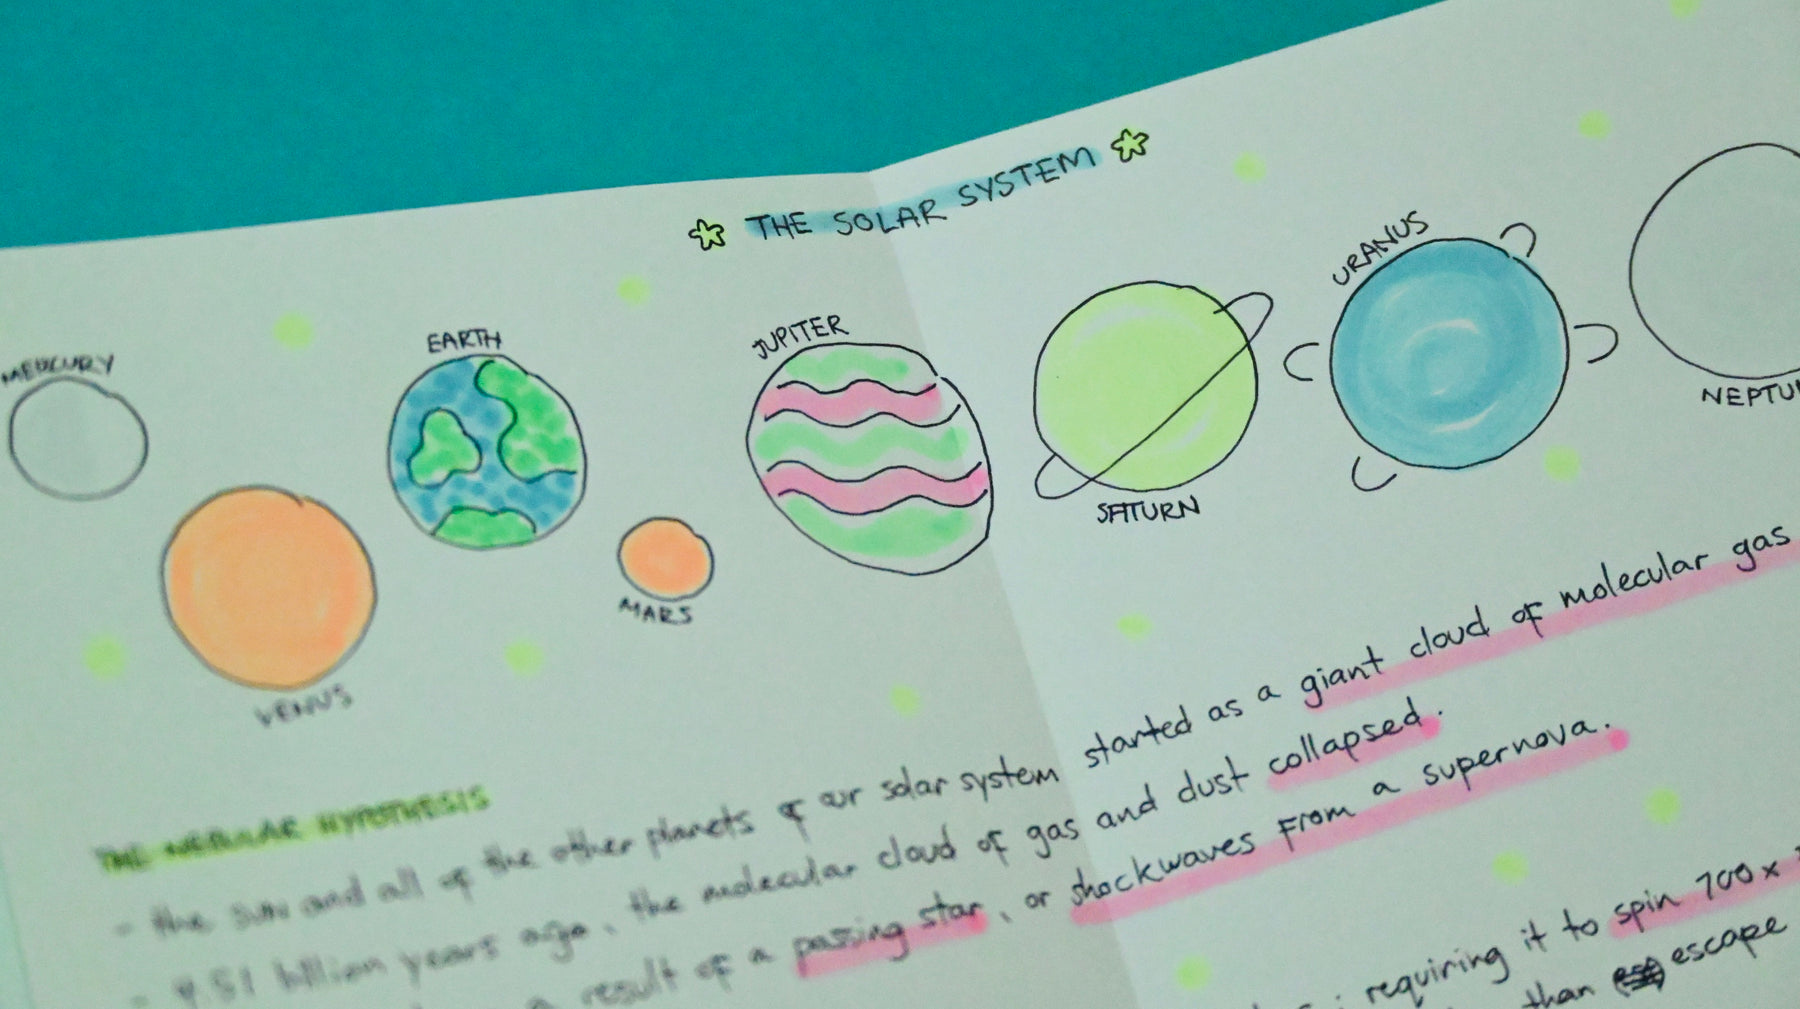 ☆ THE SOLAR SYSTEM ☆
MERCURY
VENUS
EARTH
MARS
JUPITER
SATURN
URANUS
NEPTU
THE NEBULAR HYPOTHESIS
- the sun and all of the other planets of our solar system started as a giant cloud of molecular gas
- 4.51 billion years ago, the molecular cloud of gas and dust collapsed.
a result of a passing star, or shockwaves from a supernova.
requiring it to spin 700x
than escape